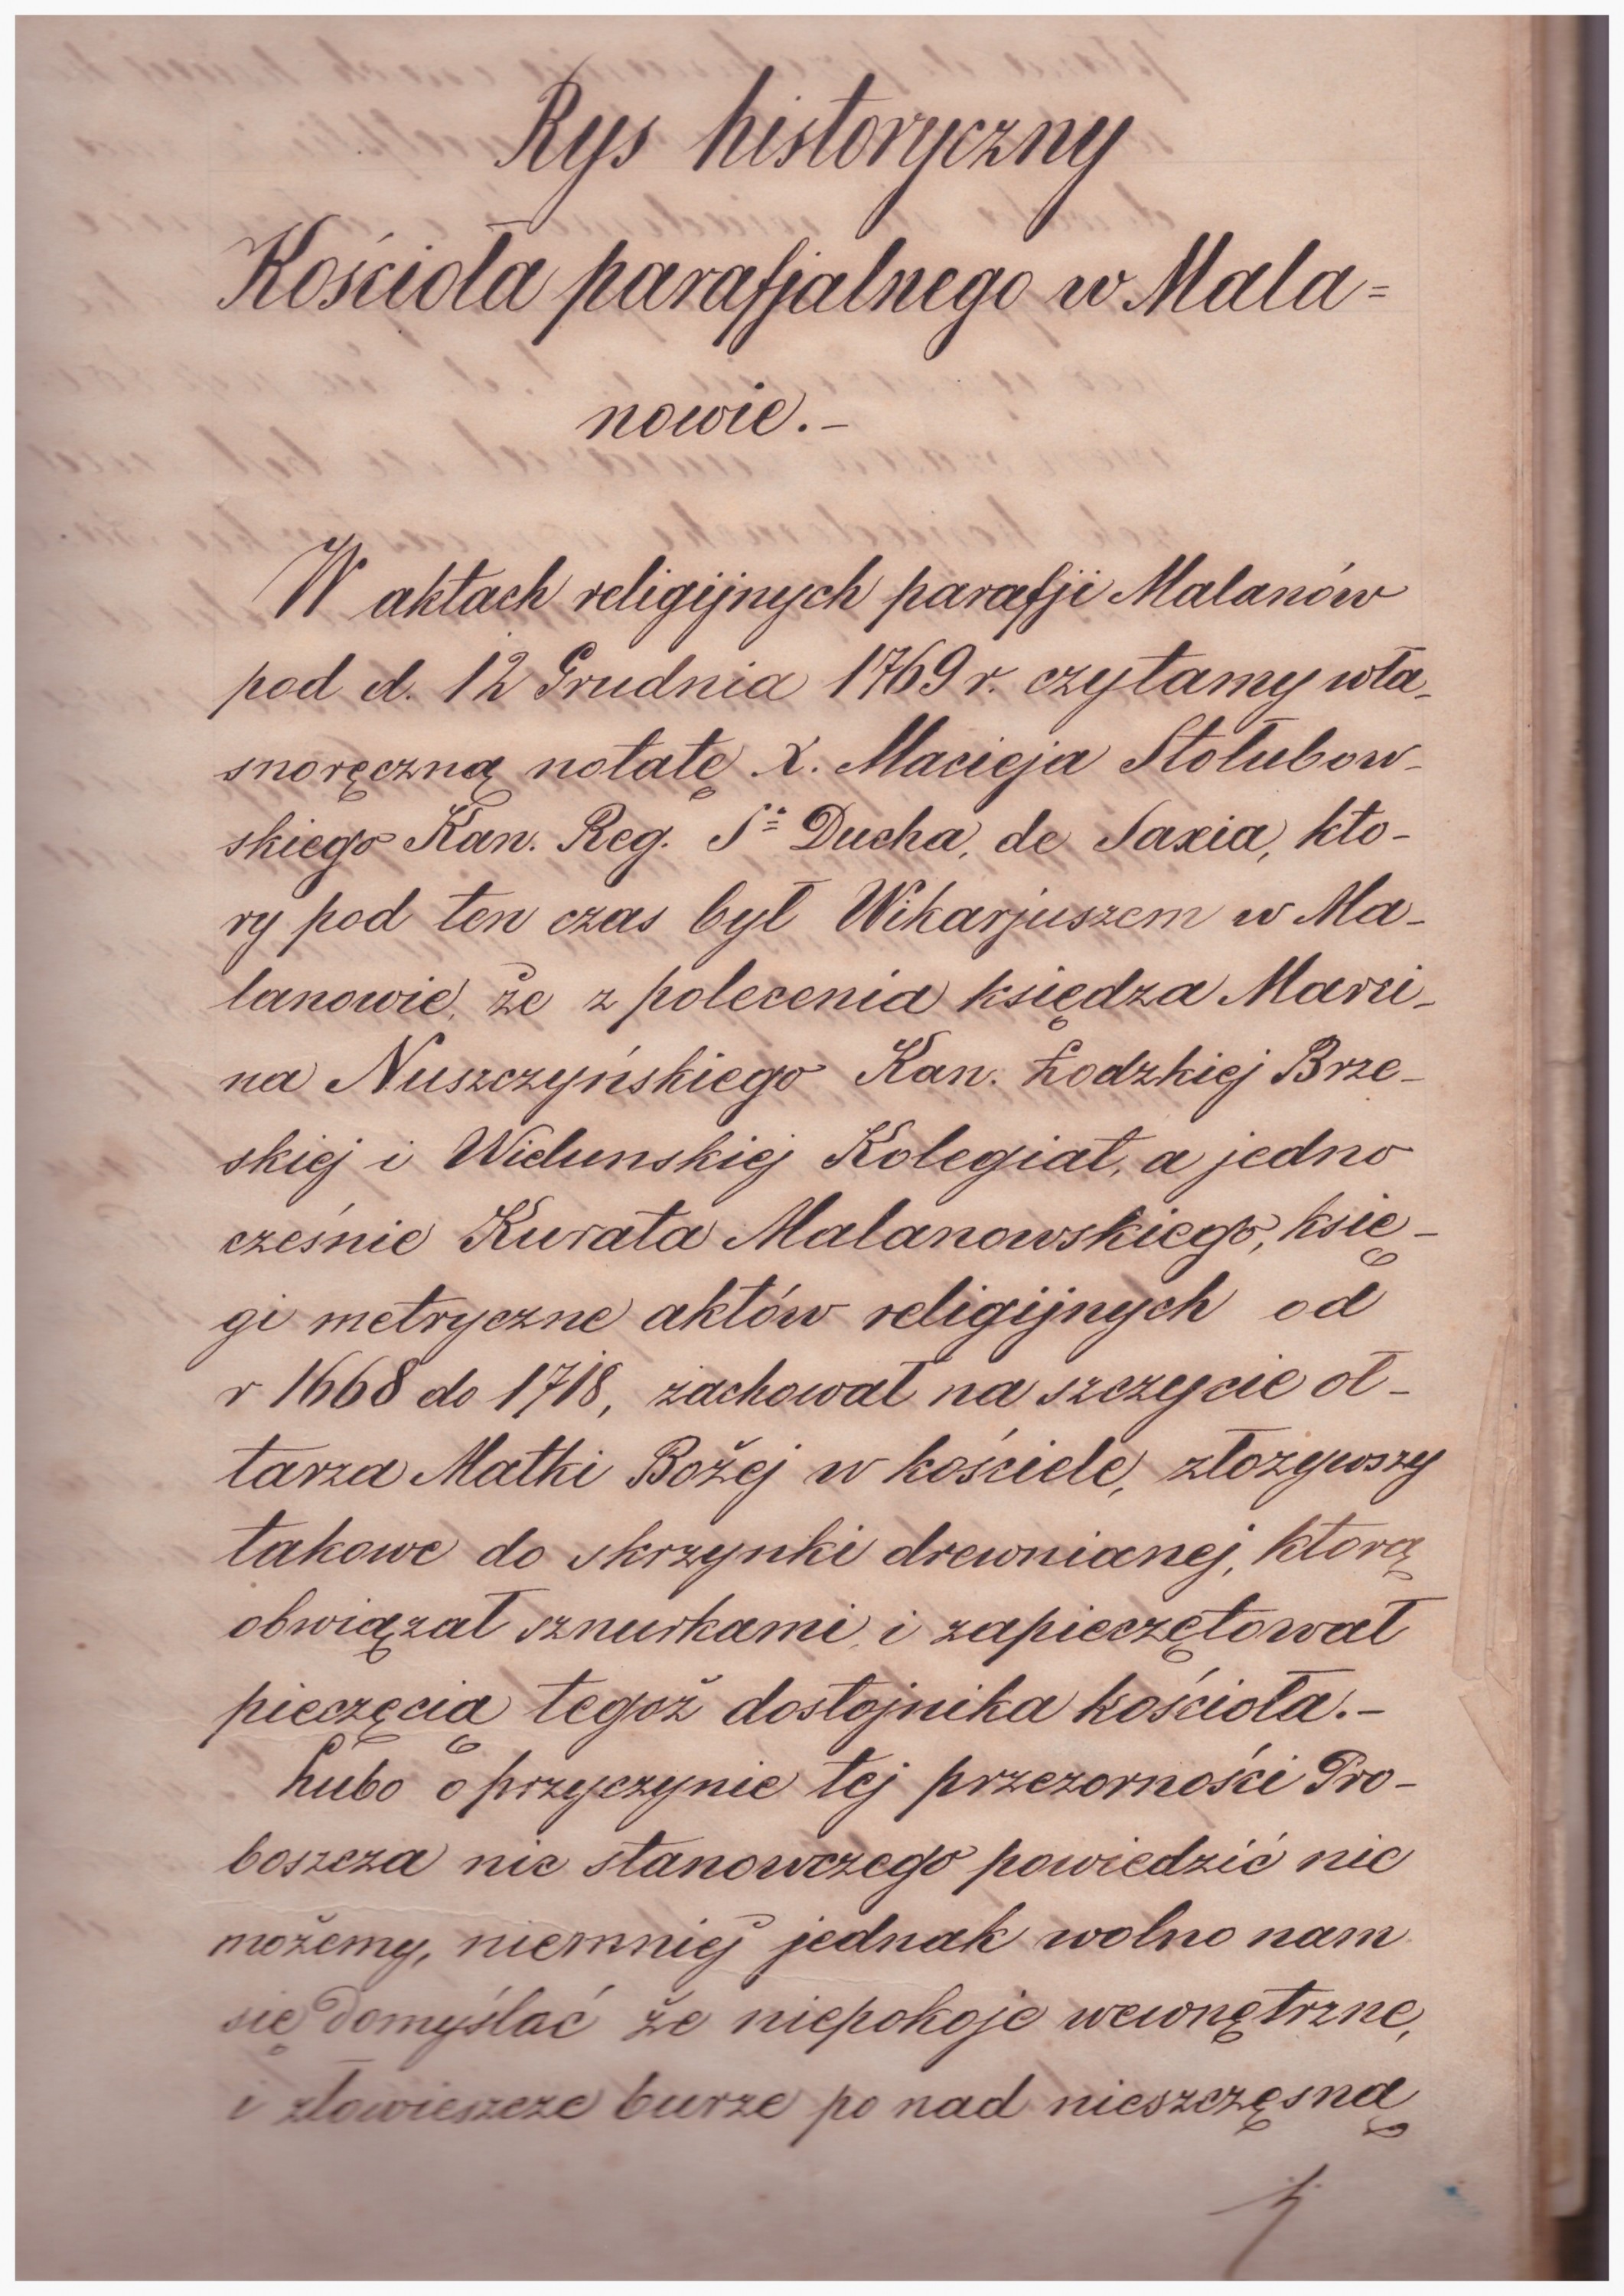 Rys historyczny
Kościoła parafjalnego w Mala=
nowie.-
W aktach religijnych parafji Malanów
pod d. 12 Grudnia 1769 r. czytamy wła-
snoręczną notatę X. Macieja Stołubow-
skiego Kan. Reg. Sº Ducha, de Saxia, kto-
ry pod ten czas był Wikarjuszem w Ma-
lanowie, że z polecenia księdza Marci-
na Nuszczyńskiego Kan. Łodzkiej Brze-
skiej i Wielunskiej Kolegiat, a jedno
cześnie Kurata Malanowskiego, księ-
gi metryczne aktów religijnych od
r 1668 do 1718, zachował na szczycie oł-
tarza Matki Bożej w kościele, złozywszy
takowe do skrzynki drewnianej, ktorą
obwiązał sznurkami, i zapieczętował
pieczęcią tegoż dostojnika kościoła.-
Lubo o przyczynie tej przezorności Pro-
boszcza nic stanowczego powiedzić nie
możemy, niemniej jednak wolno nam
się domyślać że niepokoje wewnętrzne,
i złowieszcze burze po nad nieszczęsną